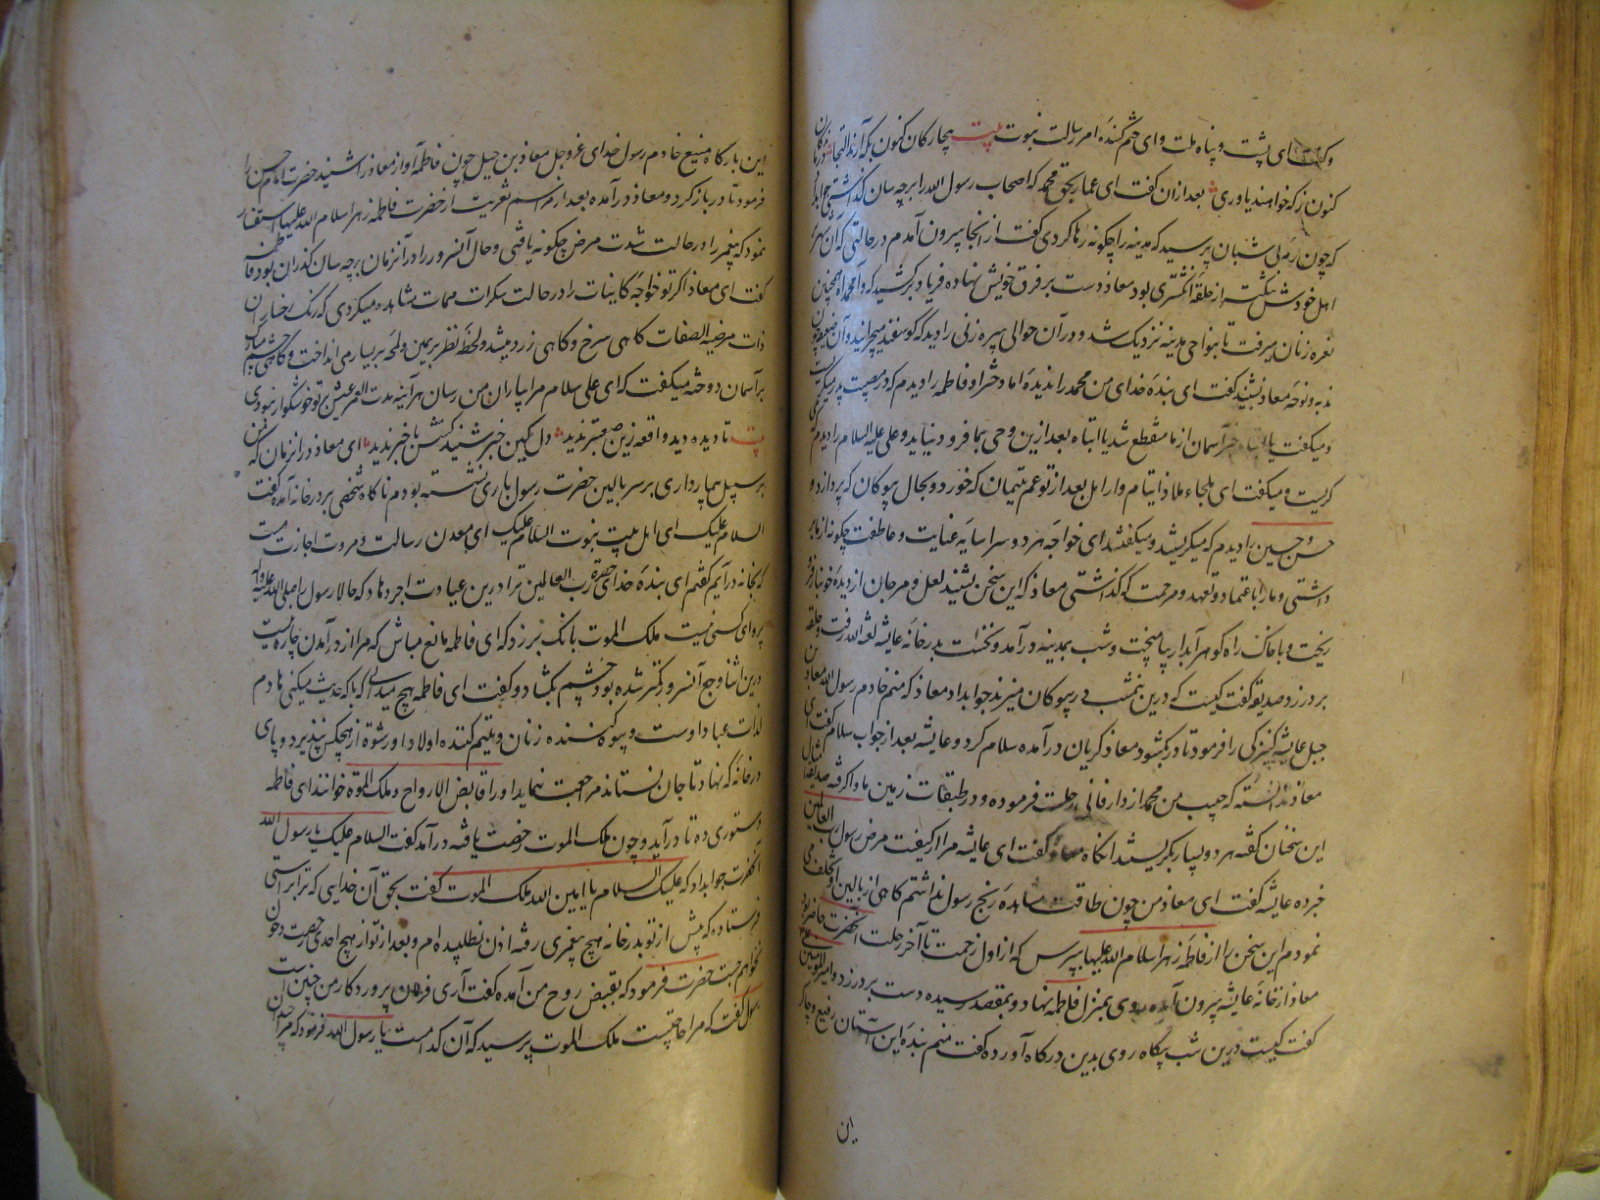 ای پشت و پناه ملت و ای ختم کننده امر رسالت نبوت بیت بیچارکان کنون بکه آرند التجا
کنون ز که خواهند یاوری بعد ازان کفت ای عمار بحق محمد که اصحاب رسول الله را برچه سان کذاشتی
که چون رمه بی شبان پرسید که مدینه را چکونه رها کردی کفت از انجا بیرون آمدم در حالتی که آن
اهل خود تنک تر از حلقه انکشتری بود معاذ دست بر فرق خویش نهاده فریاد برکشید که وا محمداه همچنین
نعره زنان میرفت تا بنواحی مدینه نزدیک شد و در آن حوالی پیره زنی را دید که کوسفند میچرانید و آن ضعیفه چون
ندبه و نوحه معاذ بشنید کفت ای بنده خدای من محمد را ندیده اما دختر او فاطمه را دیدم که در مصیبت پدر میکریست
و میکفت یا ابتاه خبر آسمان از ما منقطع شد یا ابتاه بعد ازین وحی بما فرود نیاید و علی علیه السلام را دیدم که
کریست و میکفت ای ملجاء و ملاذ ایتام و ارامل بعد از تو غم یتیمان که خورد و بحال بیوکان که پردازد و
حسن و حسین را دیدم که میکریستند و میکفتند ای خواجه هر دو سرا سایه عنایت و عاطفت چکونه از ما بر
داشتی و ما را باعتماد و تعهد و مرحمت که کذاشتی معاذ که این سخن بشنید لعل و مرجان از دیده خونبار
ریخت و با خاک راه کوهر آبدار بیامیخت و شب بمدینه در آمد و نخست بدر خانه عایشه رفت و حلقه
بر در زد صدیقه کفت کیست که درین نیمشب در بیوکان میزند جواب داد معاذ که منم خادم رسول الله معاذ بن
جبل عایشه کنیزکی را فرمود تا در بکشود معاذ کریان در آمده سلام کرد و عایشه بعد از جواب سلام کفت ای
معاذ ندانسته که حبیب من محمد از دار فانی رحلت فرموده و در طبقات زمین ماوا کرفته
این سخنان کفته هر دو بسیار بکریستند انکاه معاذ کفت ای عایشه مرا از کیفیت مرض رسول رب العالمین
خبر ده عایشه کفت ای معاذ من چون طاقت مشاهده رنج رسول نداشتم کاهی از بالین او تخلف می
نمودم این سخن را از فاطمه زهرا سلام الله علیها بپرس که از اول زحمت تا آخر رحلت آنحضرت حاضر بود
معاذ از خانه عایشه بیرون آمده روی بمنزل فاطمه نهاد و بمقصد رسیده دست بر در زد
کفت کیست درین شب بیکاه روی بدین درکاه آورده کفت منم بنده این آستان رفیع و چاکر
این
این بارکاه منیع خادم رسول خدای عز و جل معاذ بن جبل چون فاطمه آواز معاذ را شنید حضرت امام حسن را
فرمود تا در باز کرد و معاذ در آمده بعد از مراسم تعزیت از حضرت فاطمه زهرا سلام الله علیها استفسار
نمود که پیغمبر را در حالت شدت مرض چکونه یافتی و حال آنسرور را در آنزمان برچه سان کذران بود فاطمه
کفت ای معاذ اکر تو خواجه کاینات را در حالت سکرات ممات مشاهده میکردی که رنک رخسار آن
ذات مرضیة الصفات کاهی سرخ و کاهی زرد میشد و لحظه نظر بر یمین و لمحه بر یسار می انداخت و کاهی چشم مبارک
بر آسمان دوخته میکفت که ای علی سلام مرا بیاران من رسان هر آینه مدت العمر عیش بر تو خوشکوار نبودی
بیت تا دیده دید واقعه زین صعبتر ندید دل کین خبر شنید کسش با خبر ندید ای معاذ در انزمان که من
بر سبیل بیمارداری بر سر بالین حضرت رسول باری نشسته بودم ناکاه شخصی بر در خانه آمد و کفت
السلام علیک ای اهل بیت نبوت السلام علیک ای معدن رسالت و مروت اجازت هست
که بخانه در آیم کفتم ای بنده خدای حضرت رب العالمین ترا درین عیادت اجر دهاد که حالا رسول را صلی الله علیه و آله
پروای کسی نیست ملک الموت بانک بر زد که ای فاطمه مانع مباش که مرا از در آمدن چاره نیست
درین اثنا وجع آنسرور کمتر شده بود چشم بکشاد و کفت ای فاطمه هیچ میدانی که با که حدیث میکنی هادم
لذات عباد اوست و بیوه کننده زنان و یتیم کننده اولاد او رشوة از هیچکس نپذیرد و پای
در خانه که نهاد تا جان نستاند مراجعت ننماید او را قابض الارواح و ملک الموت خوانند ای فاطمه
دستوری ده تا در آید و چون ملک الموت رخصت یافته در آمد کفت السلام علیک یا رسول الله
آنحضرت جواب داد که علیک السلام یا امین الله ملک الموت کفت بحق آن خدایی که ترا براستی
فرستاده که پیش از تو بدر خانه هیچ پیغمبری رفته اذن نطلبیده ام و بعد از تو از هیچ احدی رخصت دخول
نخواهم جست حضرت فرمود که بقبض روح من آمده کفت آری فرمان پروردکار من چنین است
رسول کفت که مرا حاجتیست ملک الموت پرسید که آن کدامست یا رسول الله فرمود که